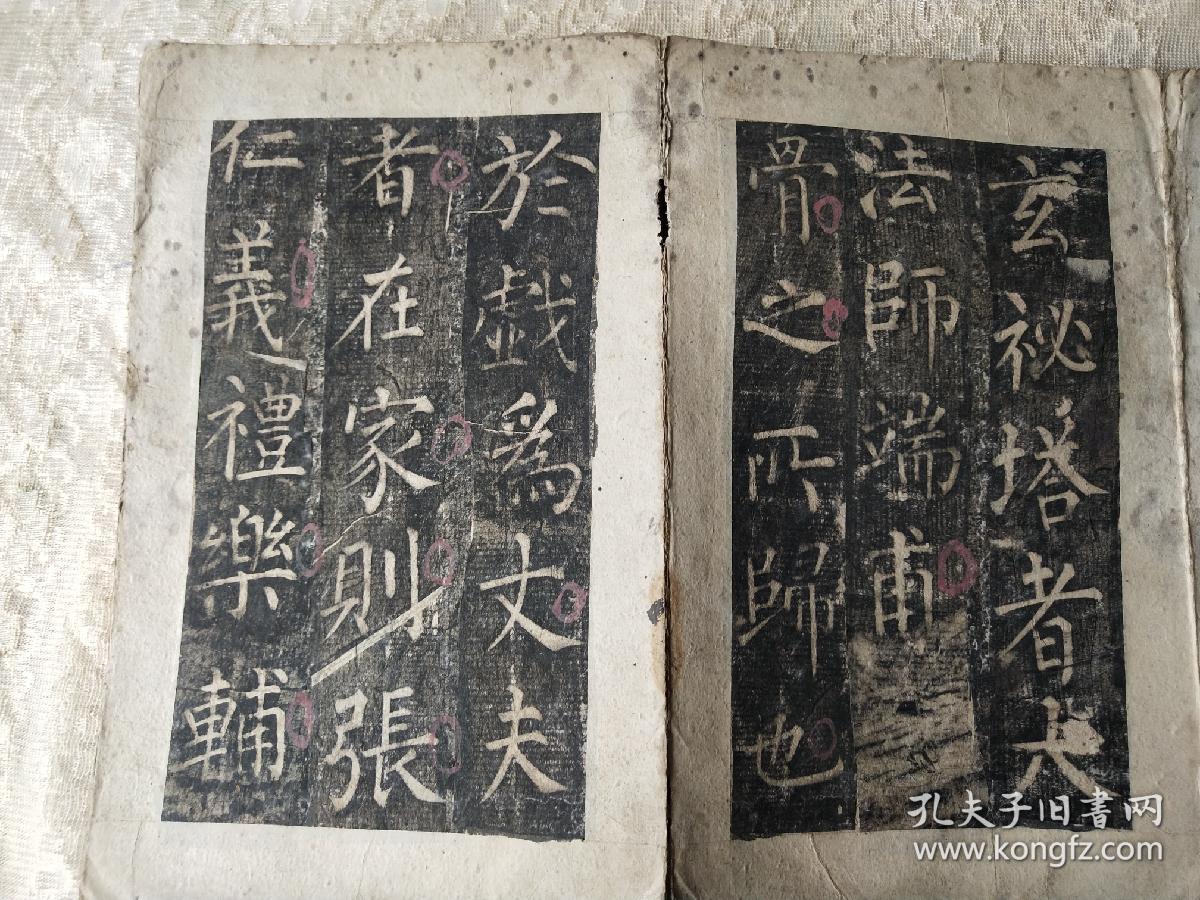 玄祕塔者大
法師端甫
骨之所歸也
於戲爲丈夫
者在家則張
仁義禮樂輔
孔夫子旧書网
www.kongfz.com